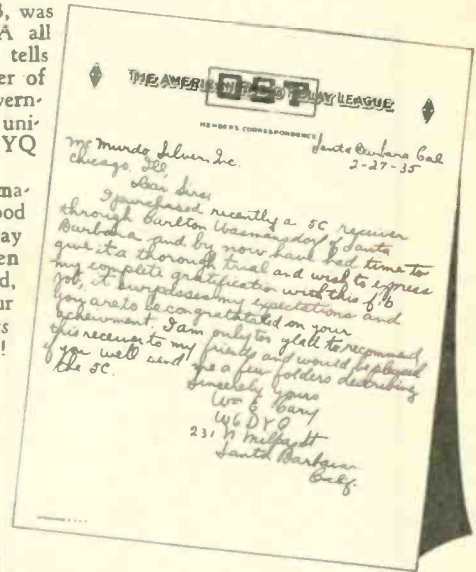 3, was
A all
tells
er of
vern-
uni-
YQ
ma-
ood
ay
en
d,
ur
s
!
THE AMERI QST LAY LEAGUE
MEMBER'S CORRESPONDENCE
Santa Barbara Cal
2-27-35
Mc Murdo Silver, Inc.
Chicago, Ill,
Dear Sirs,
I purchased recently a 5C receiver
through Carlton Wasmansdorf of Santa
Barbara and by now have had time to
give it a thorough trial and wish to express
my complete gratification with this f.b
job, it surpasses my expectations and
you are to be congratulated on your
achievment. I am only too glad to recommend
this receiver to my friends and would be pleased
if you well send me a few folders describing
the 5C.
Sincerely yours
Cary
W6DYQ
231 N Milpas St
Santa Barbara
Calif.